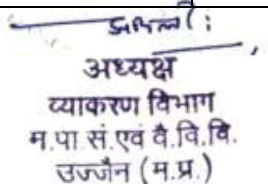 अध्यक्ष
व्याकरण विभाग
म.पा सं.एवं वै.वि.वि.
उज्जैन (म.प्र.)